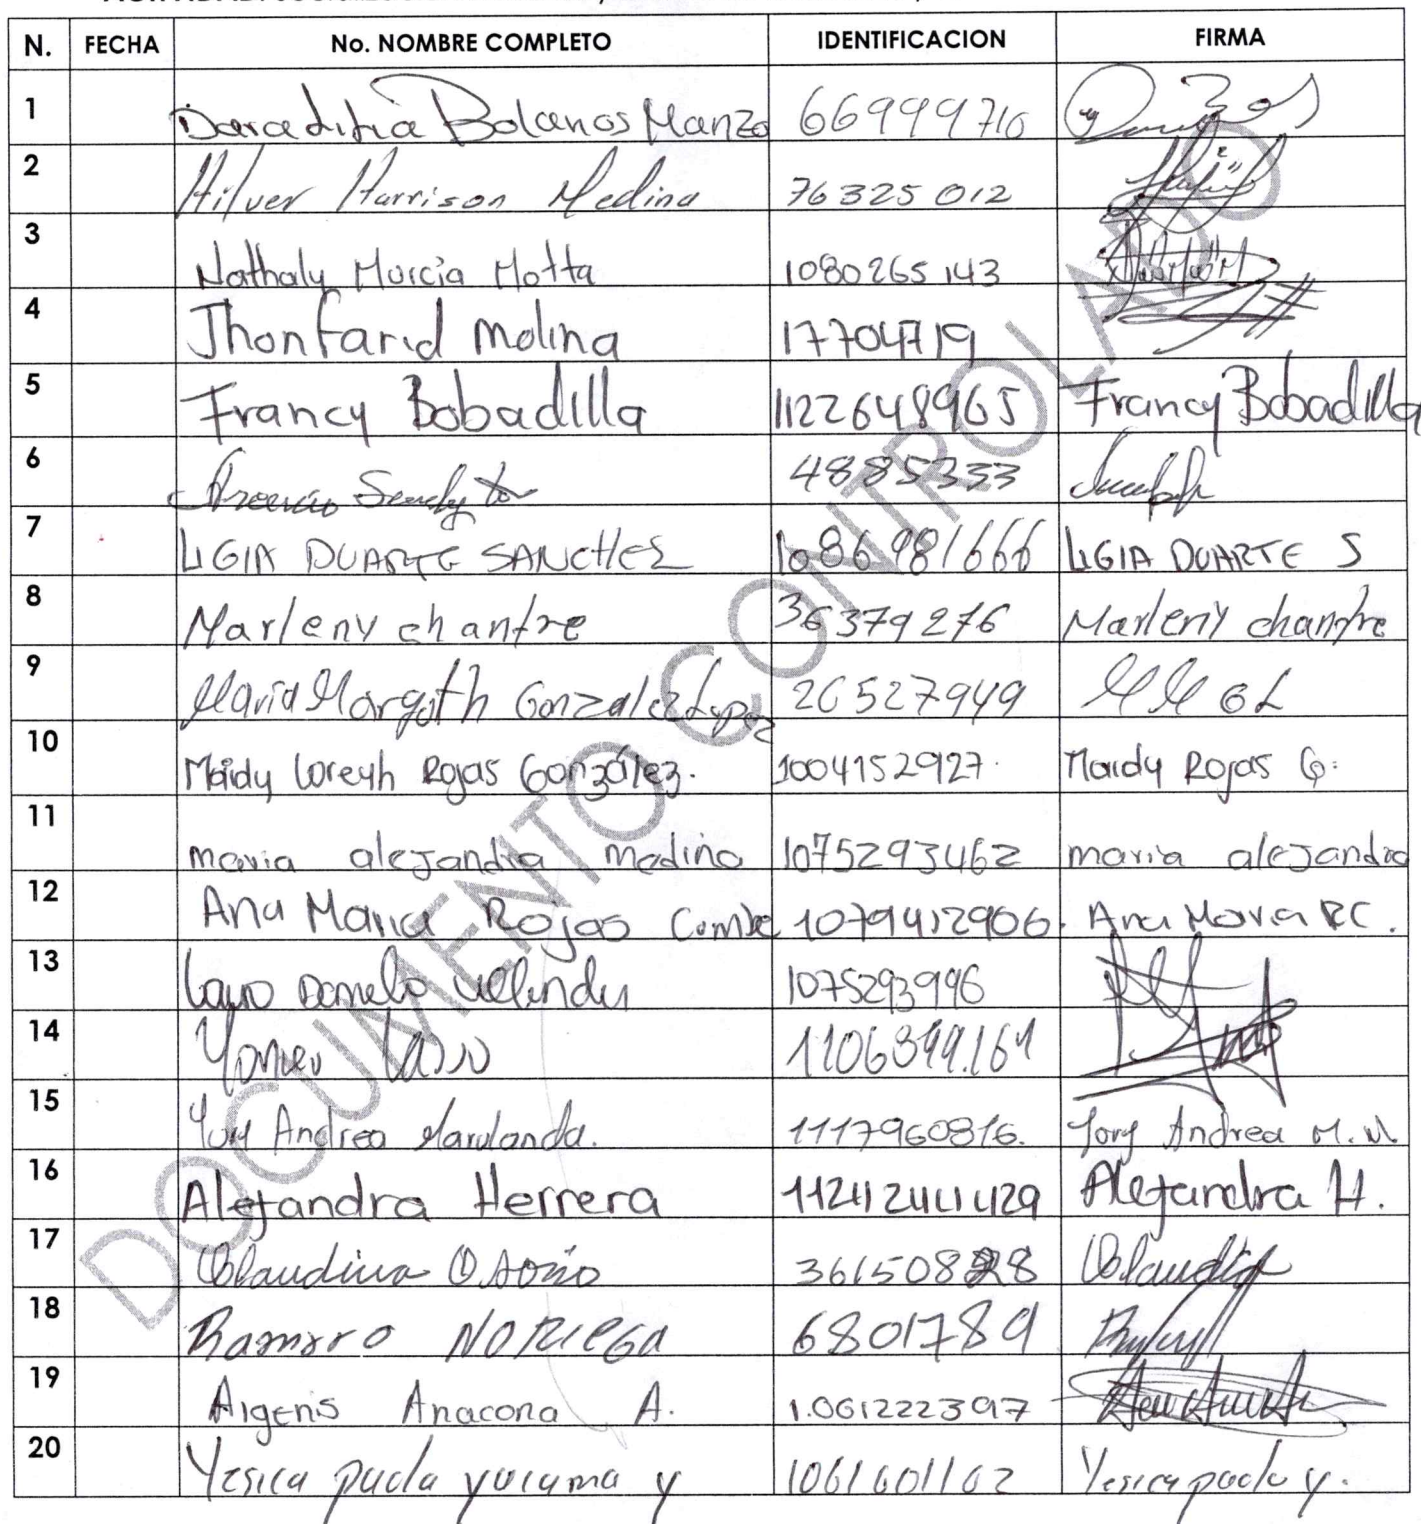 N. FECHA No. NOMBRE COMPLETO IDENTIFICACION FIRMA
1 Daraditia Bolanos Manzo 66999710
2 Hilver Harrison Medina 76325012
3 Nathaly Murcia Motta 1080265143
4 Jhonfarid Molina 17704719
5 Francy Bobadilla 1122648965 Francy Bobadilla
6 4885333
7 LIGIA DUARTE SANCHES 1086981666 LIGIA DUARTE S
8 Marleny chantre 36379276 Marleny chantre
9 Maria Margoth Gonzalez Lopez 26527949 MMGL
10 Maidy Loreyh Rojas González. 1004152927. Maidy Rojas G.
11 maria alejandra medina 1075293462 maria alejandra
12 Ana Maria Rojas Combe 1079412906. Ana Maria RC.
13 1075293996
14 Lasso 1106899.164
15 Yury Andrea Marulanda. 1117960816. Yory Andrea M. M.
16 Alejandra Herrera 1124124429 Alejandra H.
17 Claudina Osorio Claudia
18 Ramiro NORIEGA 6801789
19 Argenis Anacona A. 1.061222397
20 Yesica paola yucuma y 1061601102 Yesica paola y.
DOCUMENTO CONTROLADO